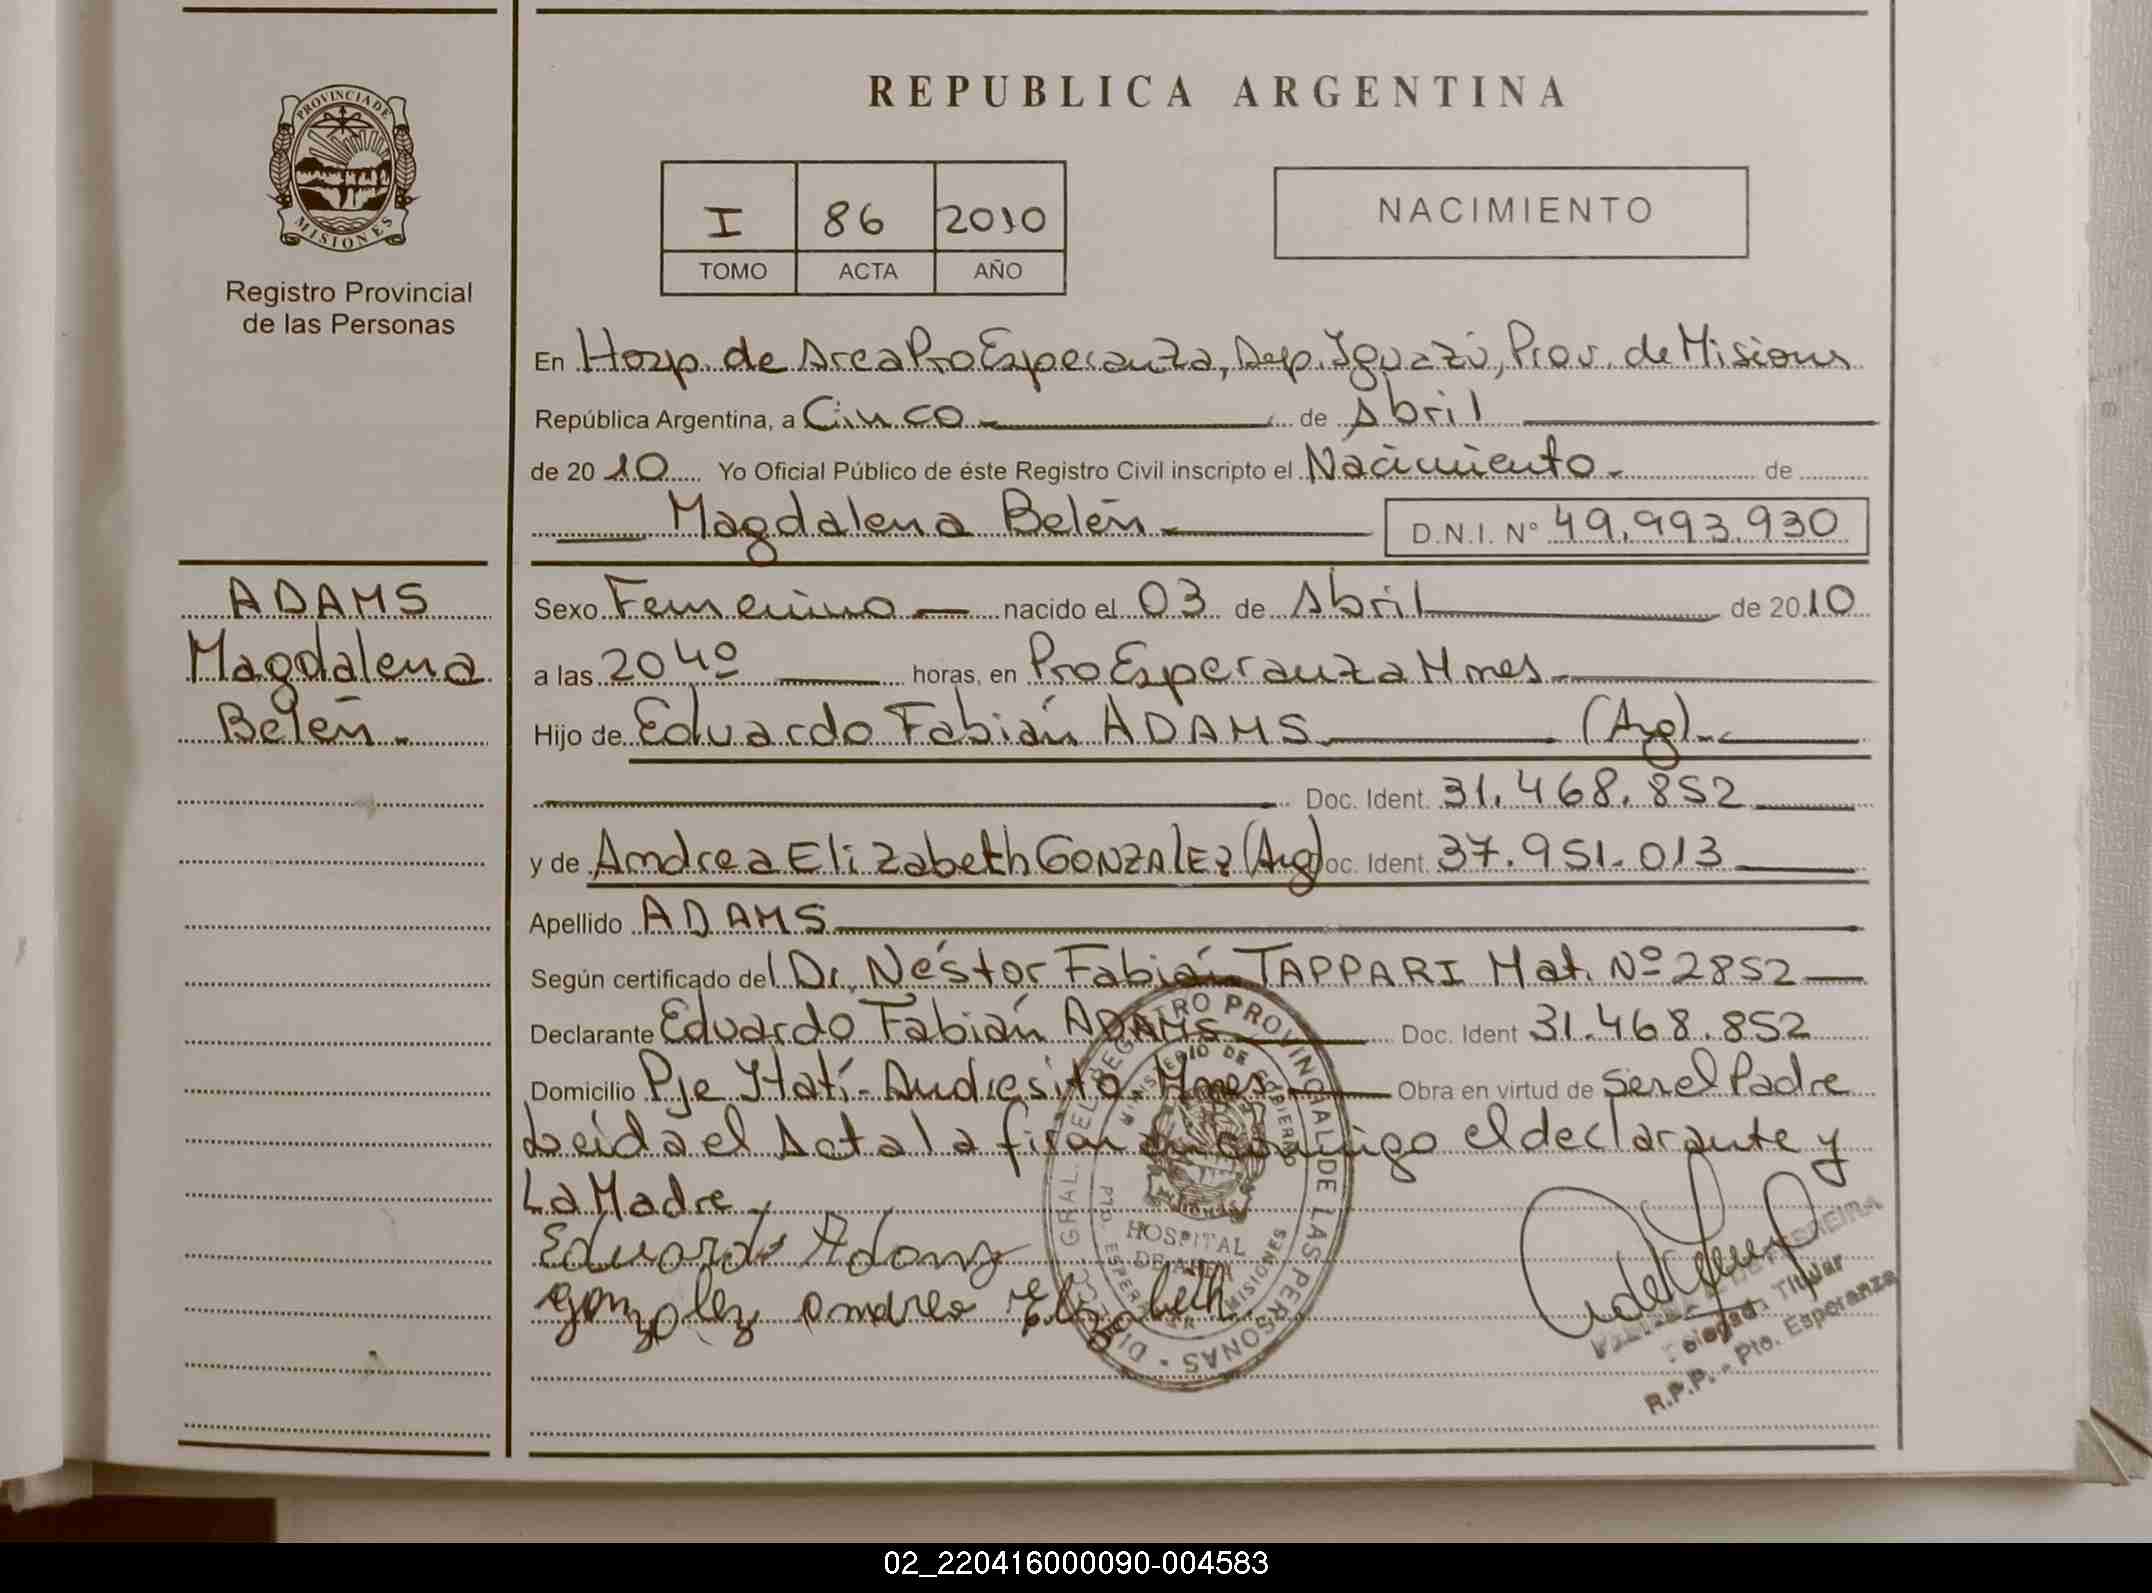 REPUBLICA ARGENTINA
PROVINCIA DE
MISIONES
Registro Provincial
de las Personas
I 86 2010
TOMO ACTA AÑO
NACIMIENTO
En Hosp. de Area Pto Esperanza, Dep. Iguazú, Prov. de Misiones
República Argentina, a Cinco de Abril
de 2010 Yo Oficial Público de éste Registro Civil inscripto el Nacimiento. de
Magdalena Belén D.N.I. Nº 49.993.930
ADAMS
Magdalena
Belén.
Sexo Femenino nacido el 03 de Abril de 2010
a las 20 40 horas, en Pto Esperanza Mnes
Hijo de Eduardo Fabián ADAMS (Arg).
Doc. Ident. 31.468.852
y de Andrea Elizabeth GONZALEZ (Arg) Doc. Ident. 37.951.013
Apellido ADAMS
Según certificado del Dr. Néstor Fabián TAPPARI Mat. Nº 2852
Declarante Eduardo Fabián ADAMS Doc. Ident 31.468.852
Domicilio Pje Itatí - Andresito Mnes Obra en virtud de ser el Padre
Leida el Acta la firman conmigo el declarante y
La Madre
Eduardo Adams
Gonzalez andrea Elizabeth
DIRECC. GRAL. DEL REGISTRO PROVINCIAL DE LAS PERSONAS
MINISTERIO DE GOBIERNO
HOSPITAL
DE AREA
PTO. ESPERANZA MISIONES
FERREIRA
Delegada Titular
R.P.P. - Pto. Esperanza
02_220416000090-004583